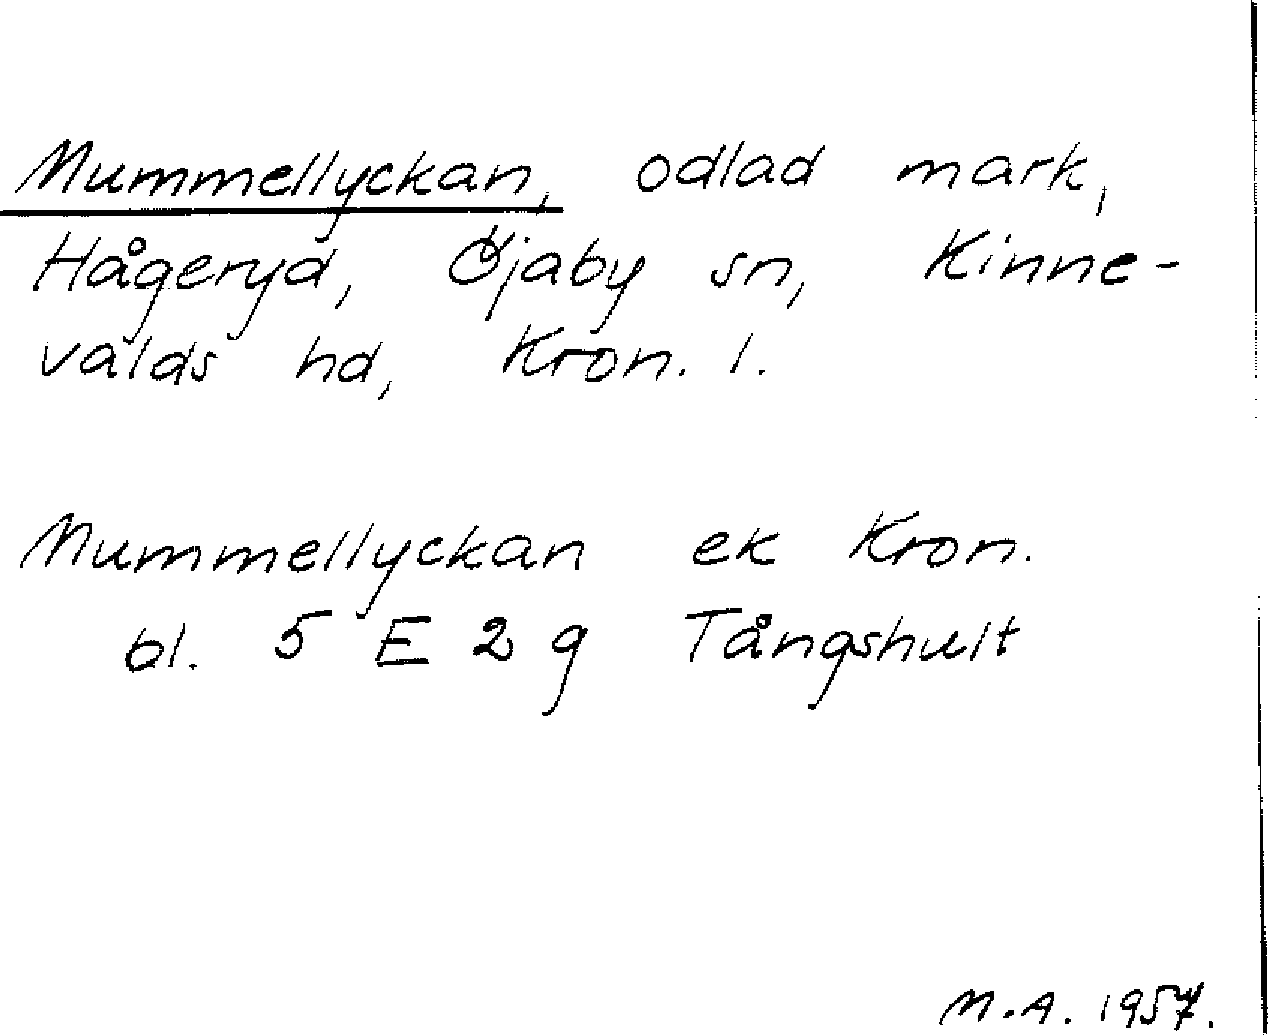 Mummellyckan, odlad mark,
Hågeryd, Öjaby sn, Kinne-
valds hd, Kron. l.
Mummellyckan ek Kron.
bl. 5 E 2 g Tångshult
M.A. 1957.